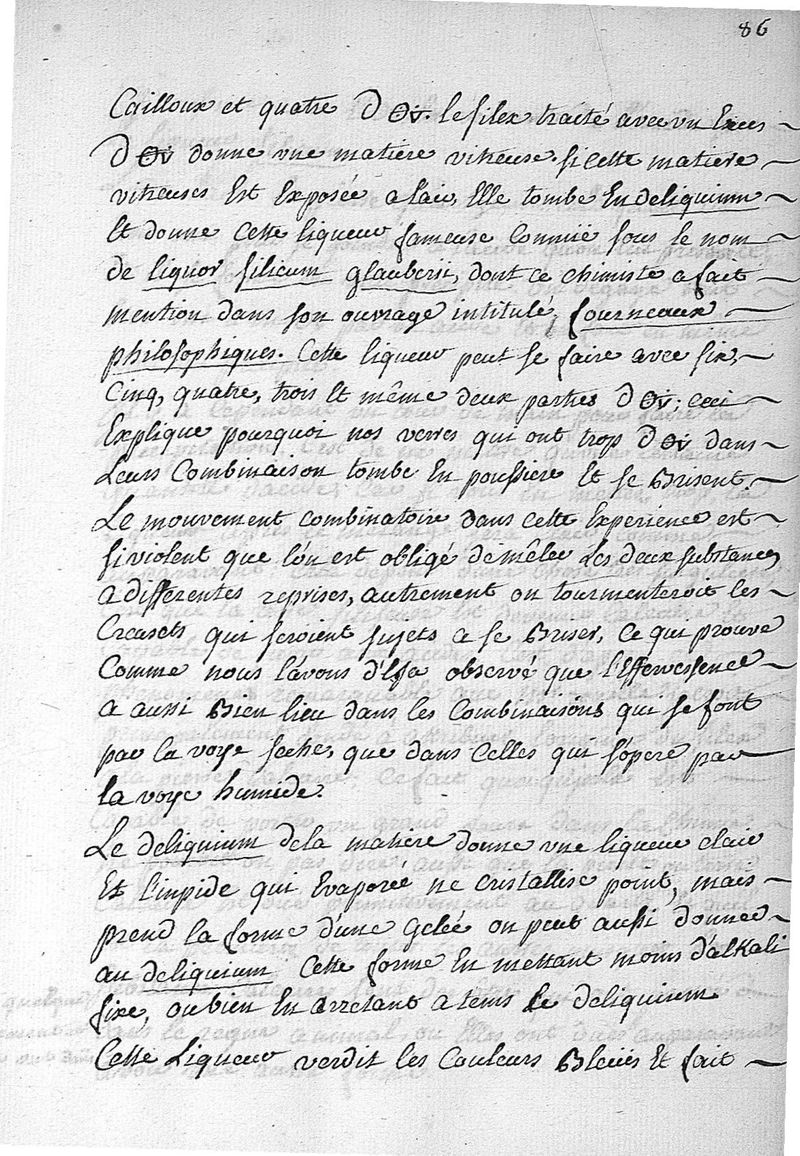 86
Cailloux et quatre d'⊖v. le silex traité avec un Exces
d'⊖v donne une matiere vitreuse. si cette matiere
vitreuses Est Exposée a l'air, Elle tombe En deliquium
Et donne Cette liqueur fameuse Connüe sous le nom
de liquor silicum glauberii, dont ce chimiste a fait
mention dans son ouvrage intitulé, fourneaux
philosophiques. Cette liqueur peut se faire avec six,
Cinq, quatre, trois Et même deux parties d'⊖v. ceci
Explique pourquoi nos verres qui ont trop d'⊖v dans
Leurs Combinaison tombe En poussiere Et se Brisent.
Le mouvement combinatoire dans cette Experience est
si violent que l'on est obligé de mêler Les deux substances
a differentes reprises, autrement on tourmenteroit les
Creusets qui seroient sujets a se Briser, Ce qui prouve
Comme nous l'avons d'Eja observé que l'Effervessence
a aussi Bien lieu dans les Combinaisons qui se font
par la voye seche, que dans Celles qui s'opere par
la voye humide.
Le deliquium de la matiere donne une liqueur clair
Et l'inpide qui Evaporée ne cristallise point, mais
prend la forme d'une Gelée on peut aussi donner
au deliquium Cette forme En mettant moins d'alkali
fixe, ou bien En arretant a tems le deliquium
Cette Liqueur verdit les Couleurs Bleües Et fait